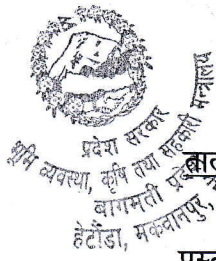 प्रदेश सरकार
भूमि व्यवस्था, कृषि तथा सहकारी मन्त्रालय
बागमती प्रदेश
हेटौंडा, मकवानपुर,